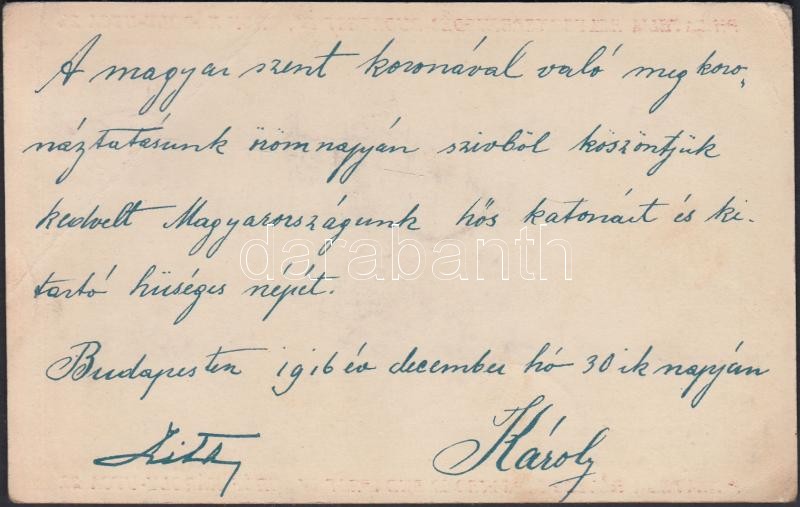 A magyar szent koronával való megkoro-
náztatásunk örömnapján szivből köszöntjük
kedvelt Magyarországunk hős katonáit és ki-
tartó hüséges népét.
darabanth
Budapesten 1916 év december hó 30 ik napján
Zita
Károly